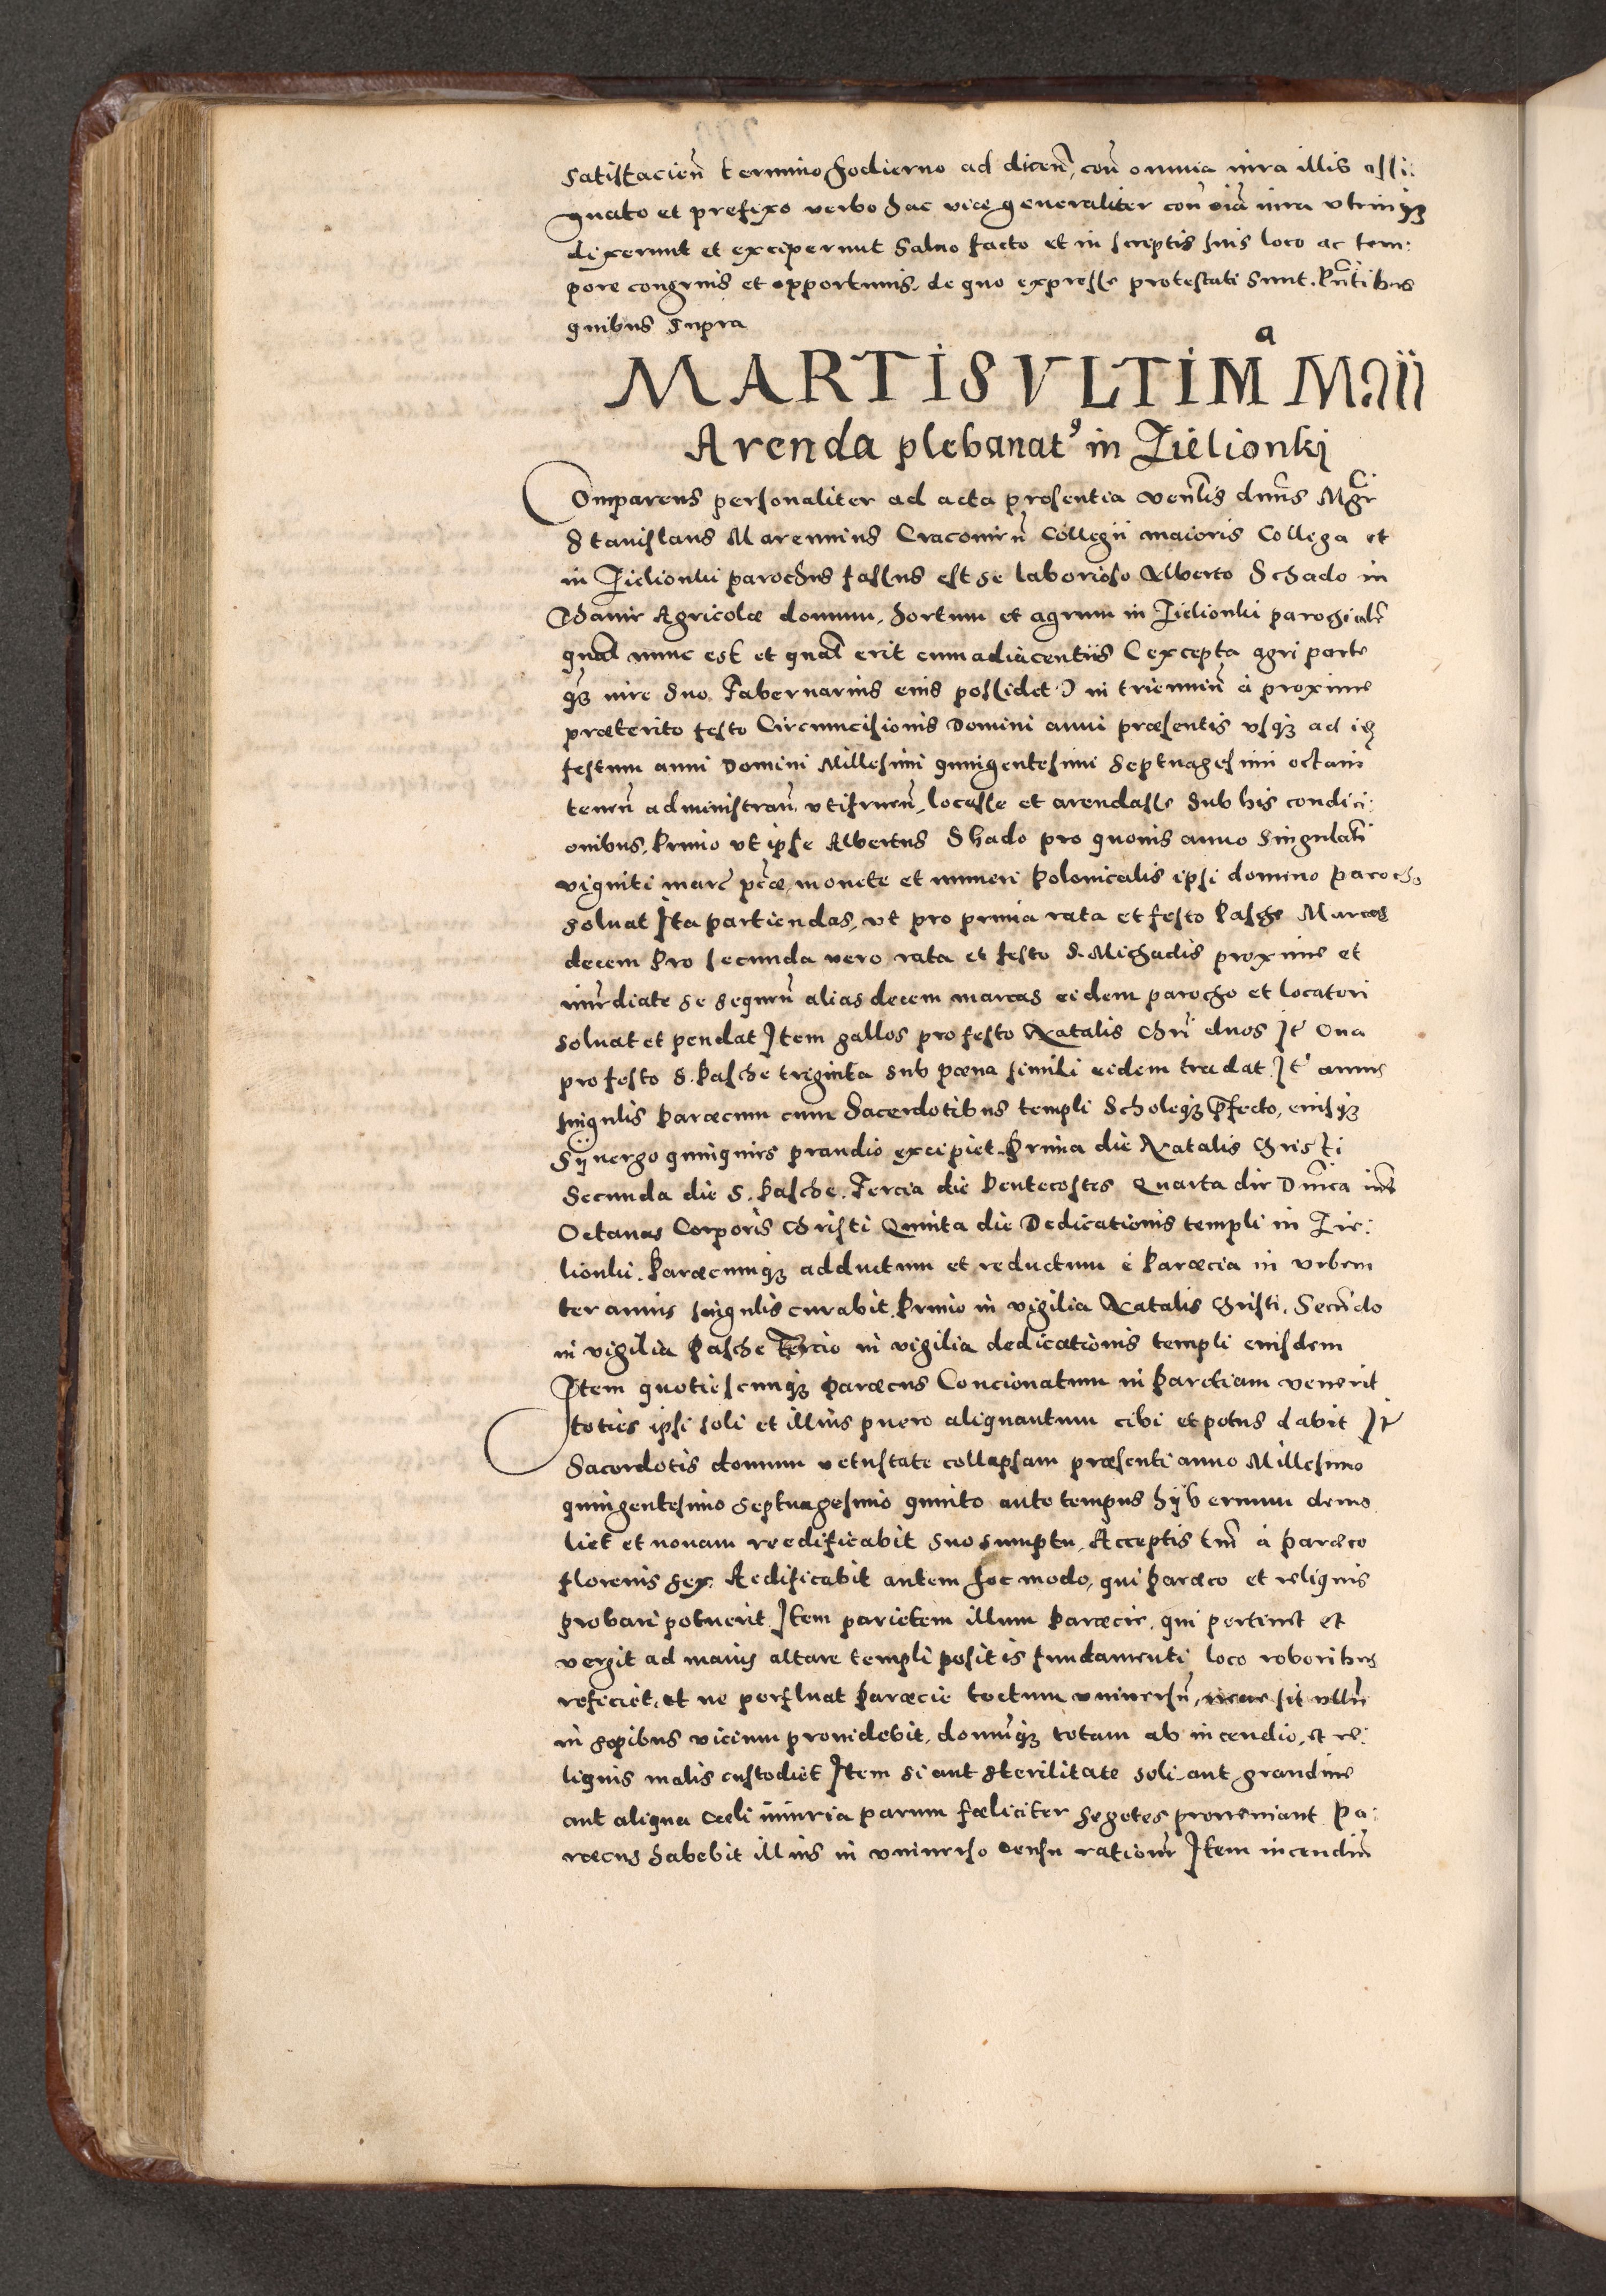 satisfacien̄ termino hodierno ad dicen̄, con̄ omnia iura illis assi:
gnato et prefixo verbo hac vice generaliter con̄ oīa iura vtrinqȝ
dixerunt et exceperunt Salvo facto et in scriptis suis loco ac tem:
pore congruis et opportunis, de quo expresse protestati sunt. Pn̄tibus
quibus supra
MARTIS VLTIMᵃ Maii
Arenda plebanatꝰ in Zielionkj
Comparens personaliter ad acta presentia ven̄lis dn̄us Mgr̄
Stanislaus Marennius Cracouien̄ Collegii maioris Collega et
in Zielionki parochus fassus est se laborioso Alberto Schado in
Agricolæ domum, hortum et agrum in Zielionki parochialē
qual nunc est et qual erit cum adiacentiis (excepta agri parte
q̄ȝ iure suo Tabernarius eius possidet) in trienniū à proxime
præterito festo Circumcisionis Domini anni præsentis vsqȝ ad id
festum anni Domini Millesimi quingentesimi septuagesimi octaui
tenen̄ administran̄, vtifruen̄, locasse et arendasse sub his condici:
onibus, Primo vt ipse Albertus Shado pro quouis anno singulati
viginti marc̄ pec̄æ monete et numeri Polonicalis ipsi domino parocho
soluat Ita partiendas, vt pro prima rata et festo Pasche Marcas
decem Pro secunda vero rata et festo S. Michaelis proxime et
im̄ediate se sequen̄ alias decem marcas eidem parocho et locatori
soluat et pendat Item gallos pro festo Natalis Chrī duos It̄ Oua
pro festo S. Pasche triginta sub pœna simili eidem tradat. It̄ annis
singulis Paræcum cum Sacerdotibus templi Scholeqȝ p̄fecto, eiusqȝ
Sÿnergo quinquies prandio excipiet. Prima die Natalis Christi
Secunda die S. Pasche. Tercia die Pentecostes Quarta die Dn̄ica in̄t
Octauas Corporis Christi Quinta die Dedicationis templi in Zie:
lionki. Paræcumqȝ adductum et reductum è Paræcia in vrbem
ter annis singulis curabit. Primo in vigilia Natalis Christi, Secūdo
in vigilia Pasche Tercio in vigilia dedicationis templi eiusdem
Item quotiescunqȝ Paræcus Concionatum in Paretiam venerit
toties ipsi soli et illius puero aliquantum cibi et potus dabit It̄
Sacerdotis domum vetustate collapsam præsenti anno Millesimo
quingentesimo septuagesimo quinto ante tempus hÿbernum demo
liet et nouam reedificabit suo sumptu, Acceptis tm̄ à Paræco
florenis sex. Aedificabit autem hoc modo, qui Paræco et reliquis
probari potuerit. Item parietem illum Paræcie, qui pertinet et
vergit ad maius altare templi positis fundamenti loco roboribus
reficiet, et ne perfluat Paræcie tectum vniuersū, neue sit vllū
in sepibus vicium prouidebit, domumqȝ totam ab incendio, et re:
liquis malis custodiet Item si aut sterilitate soli, aut grandine
aut aliqua cœli iniuria parum fœliciter segetes proueniant Pa:
ræcus habebit illius in vniuerso censu rationem Item incendiū